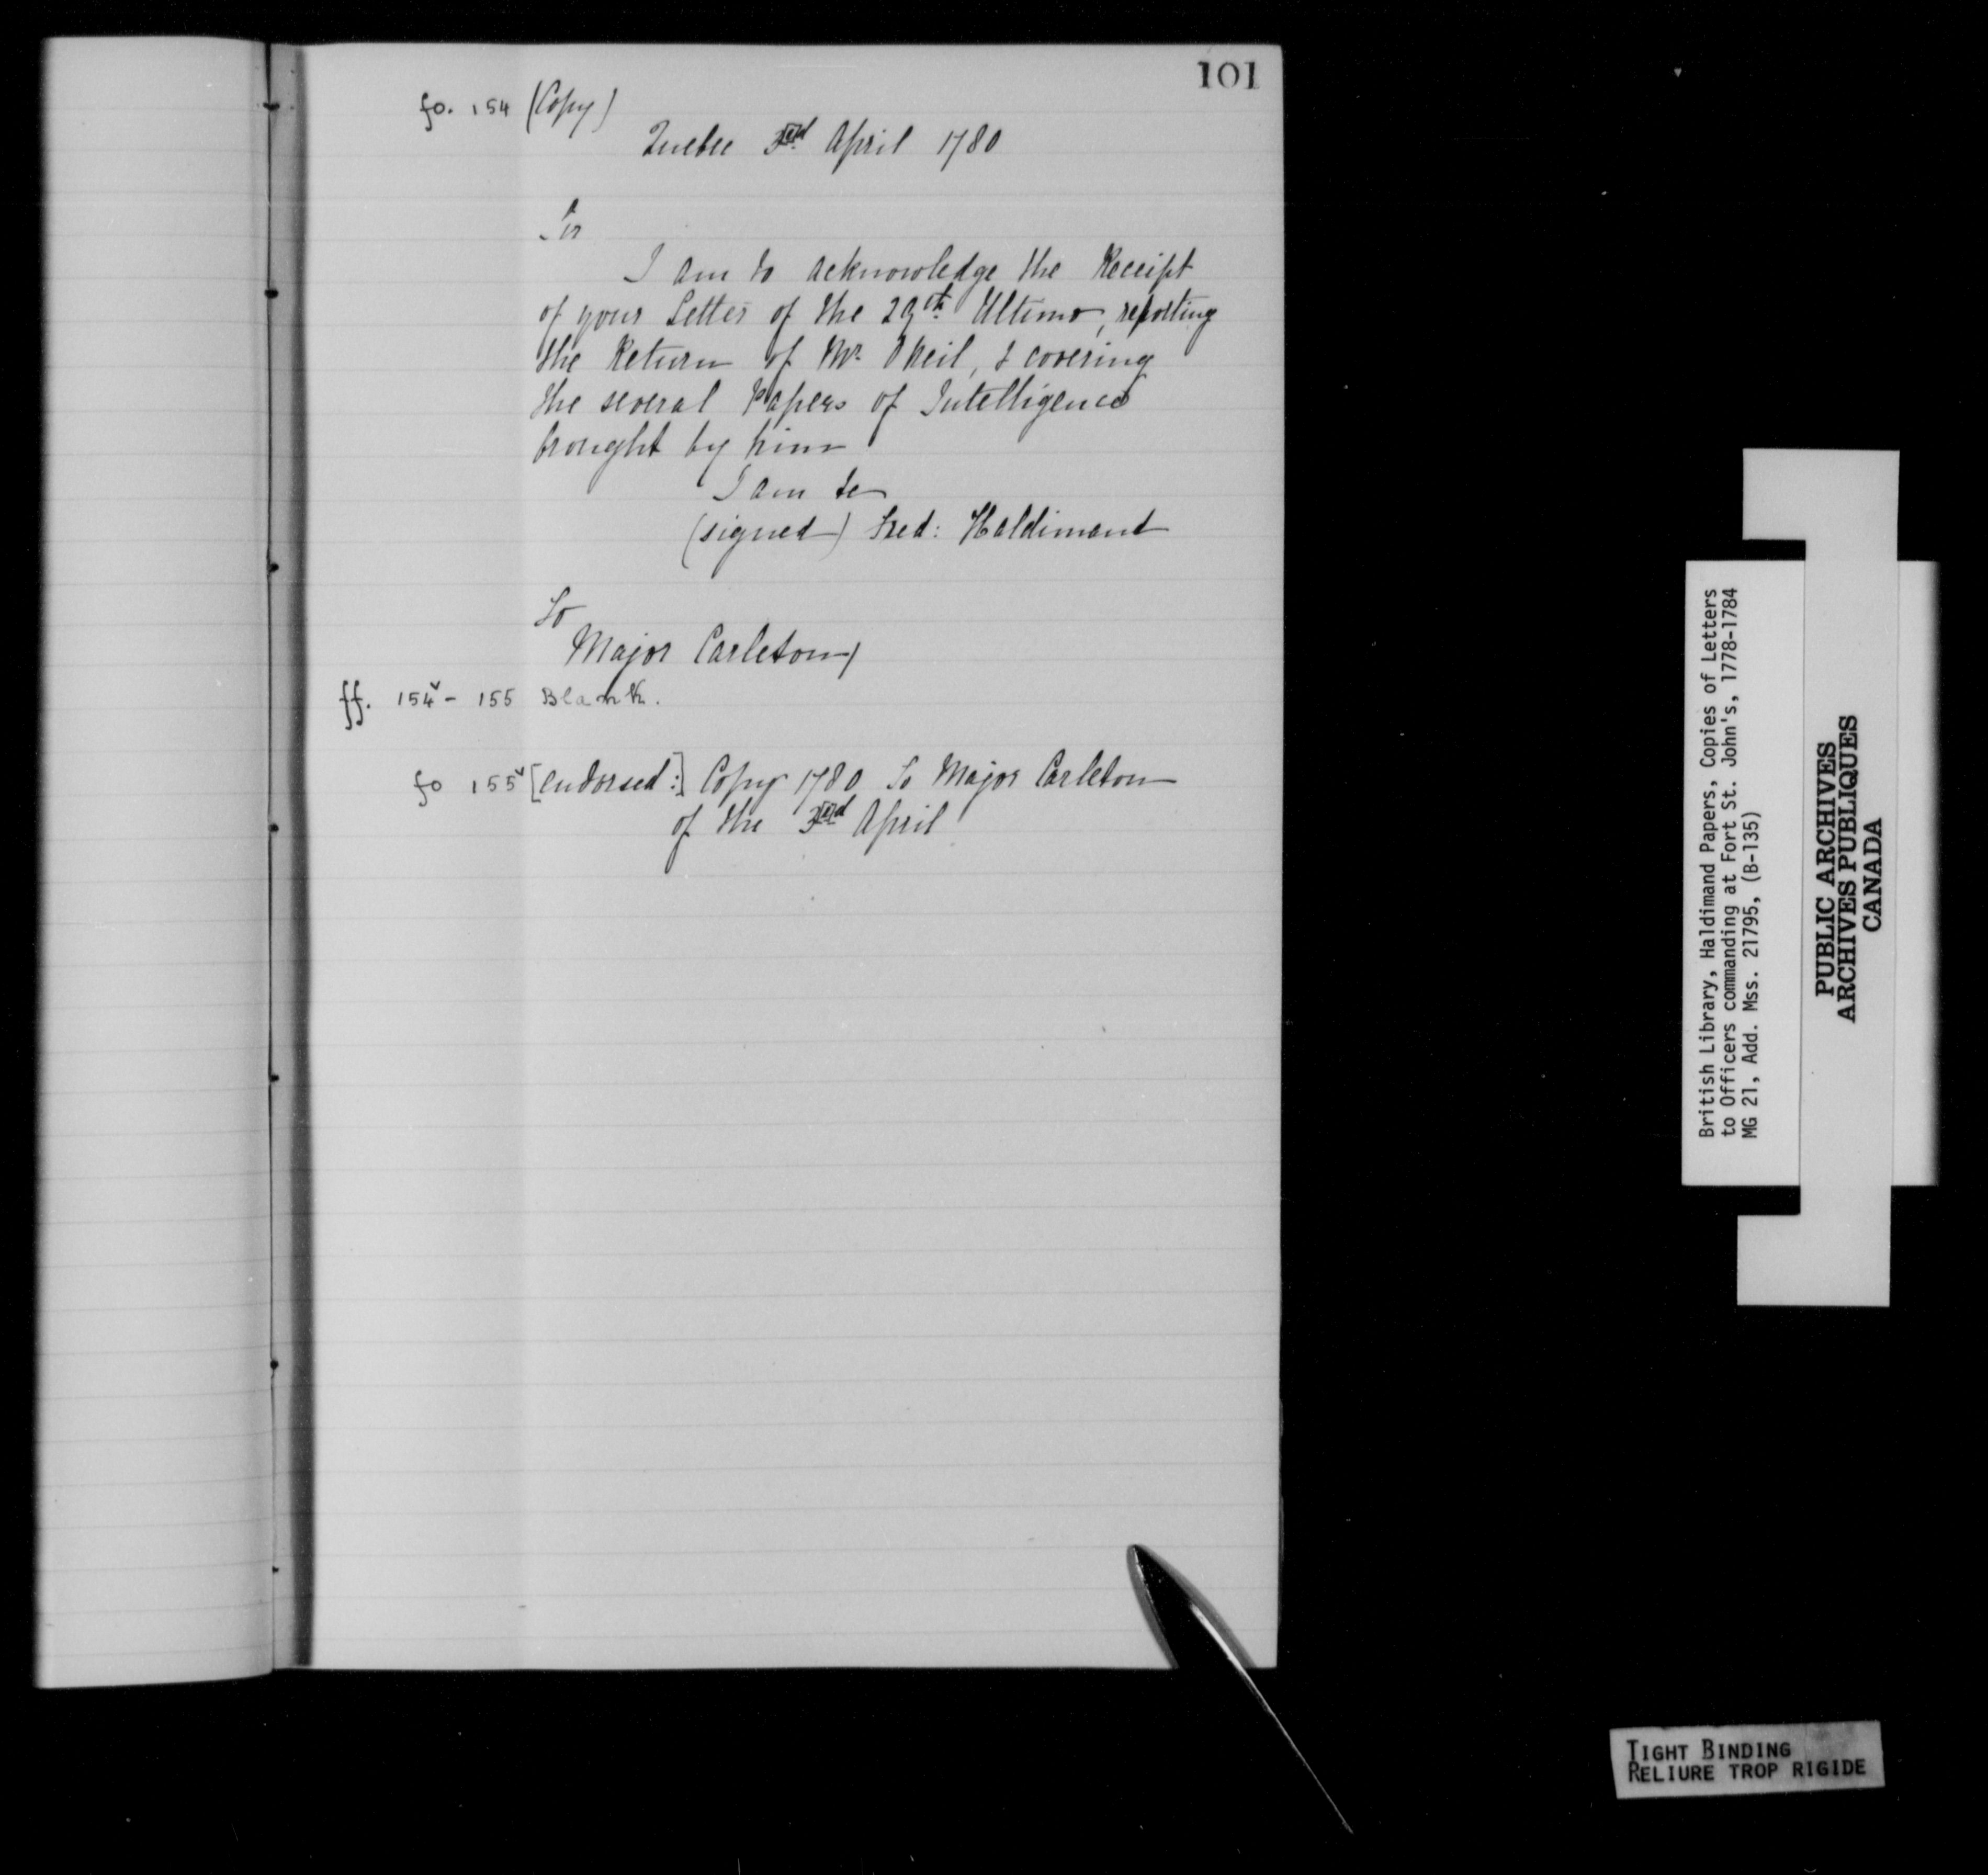 101
fo. 154 (Copy)
Quebec 3rd April 1780
Sir
I am to acknowledge the Receipt
of your Letter of the 29th Ultimo, reporting
the Return of Mr. ONeil, & covering
the several Papers of Intelligence
brought by him
I am &c
(signed) Fred: Haldimand
To
Major Carleton
ff. 154v - 155 Blank.
fo 155v [endorsed:] Copy 1780 To Major Carleton
of the 3rd April
British Library, Haldimand Papers, Copies of Letters
to Officers commanding at Fort St. John's, 1778-1784
MG 21, Add. Mss. 21795, (B-135)
PUBLIC ARCHIVES
ARCHIVES PUBLIQUES
CANADA
TIGHT BINDING
RELIURE TROP RIGIDE